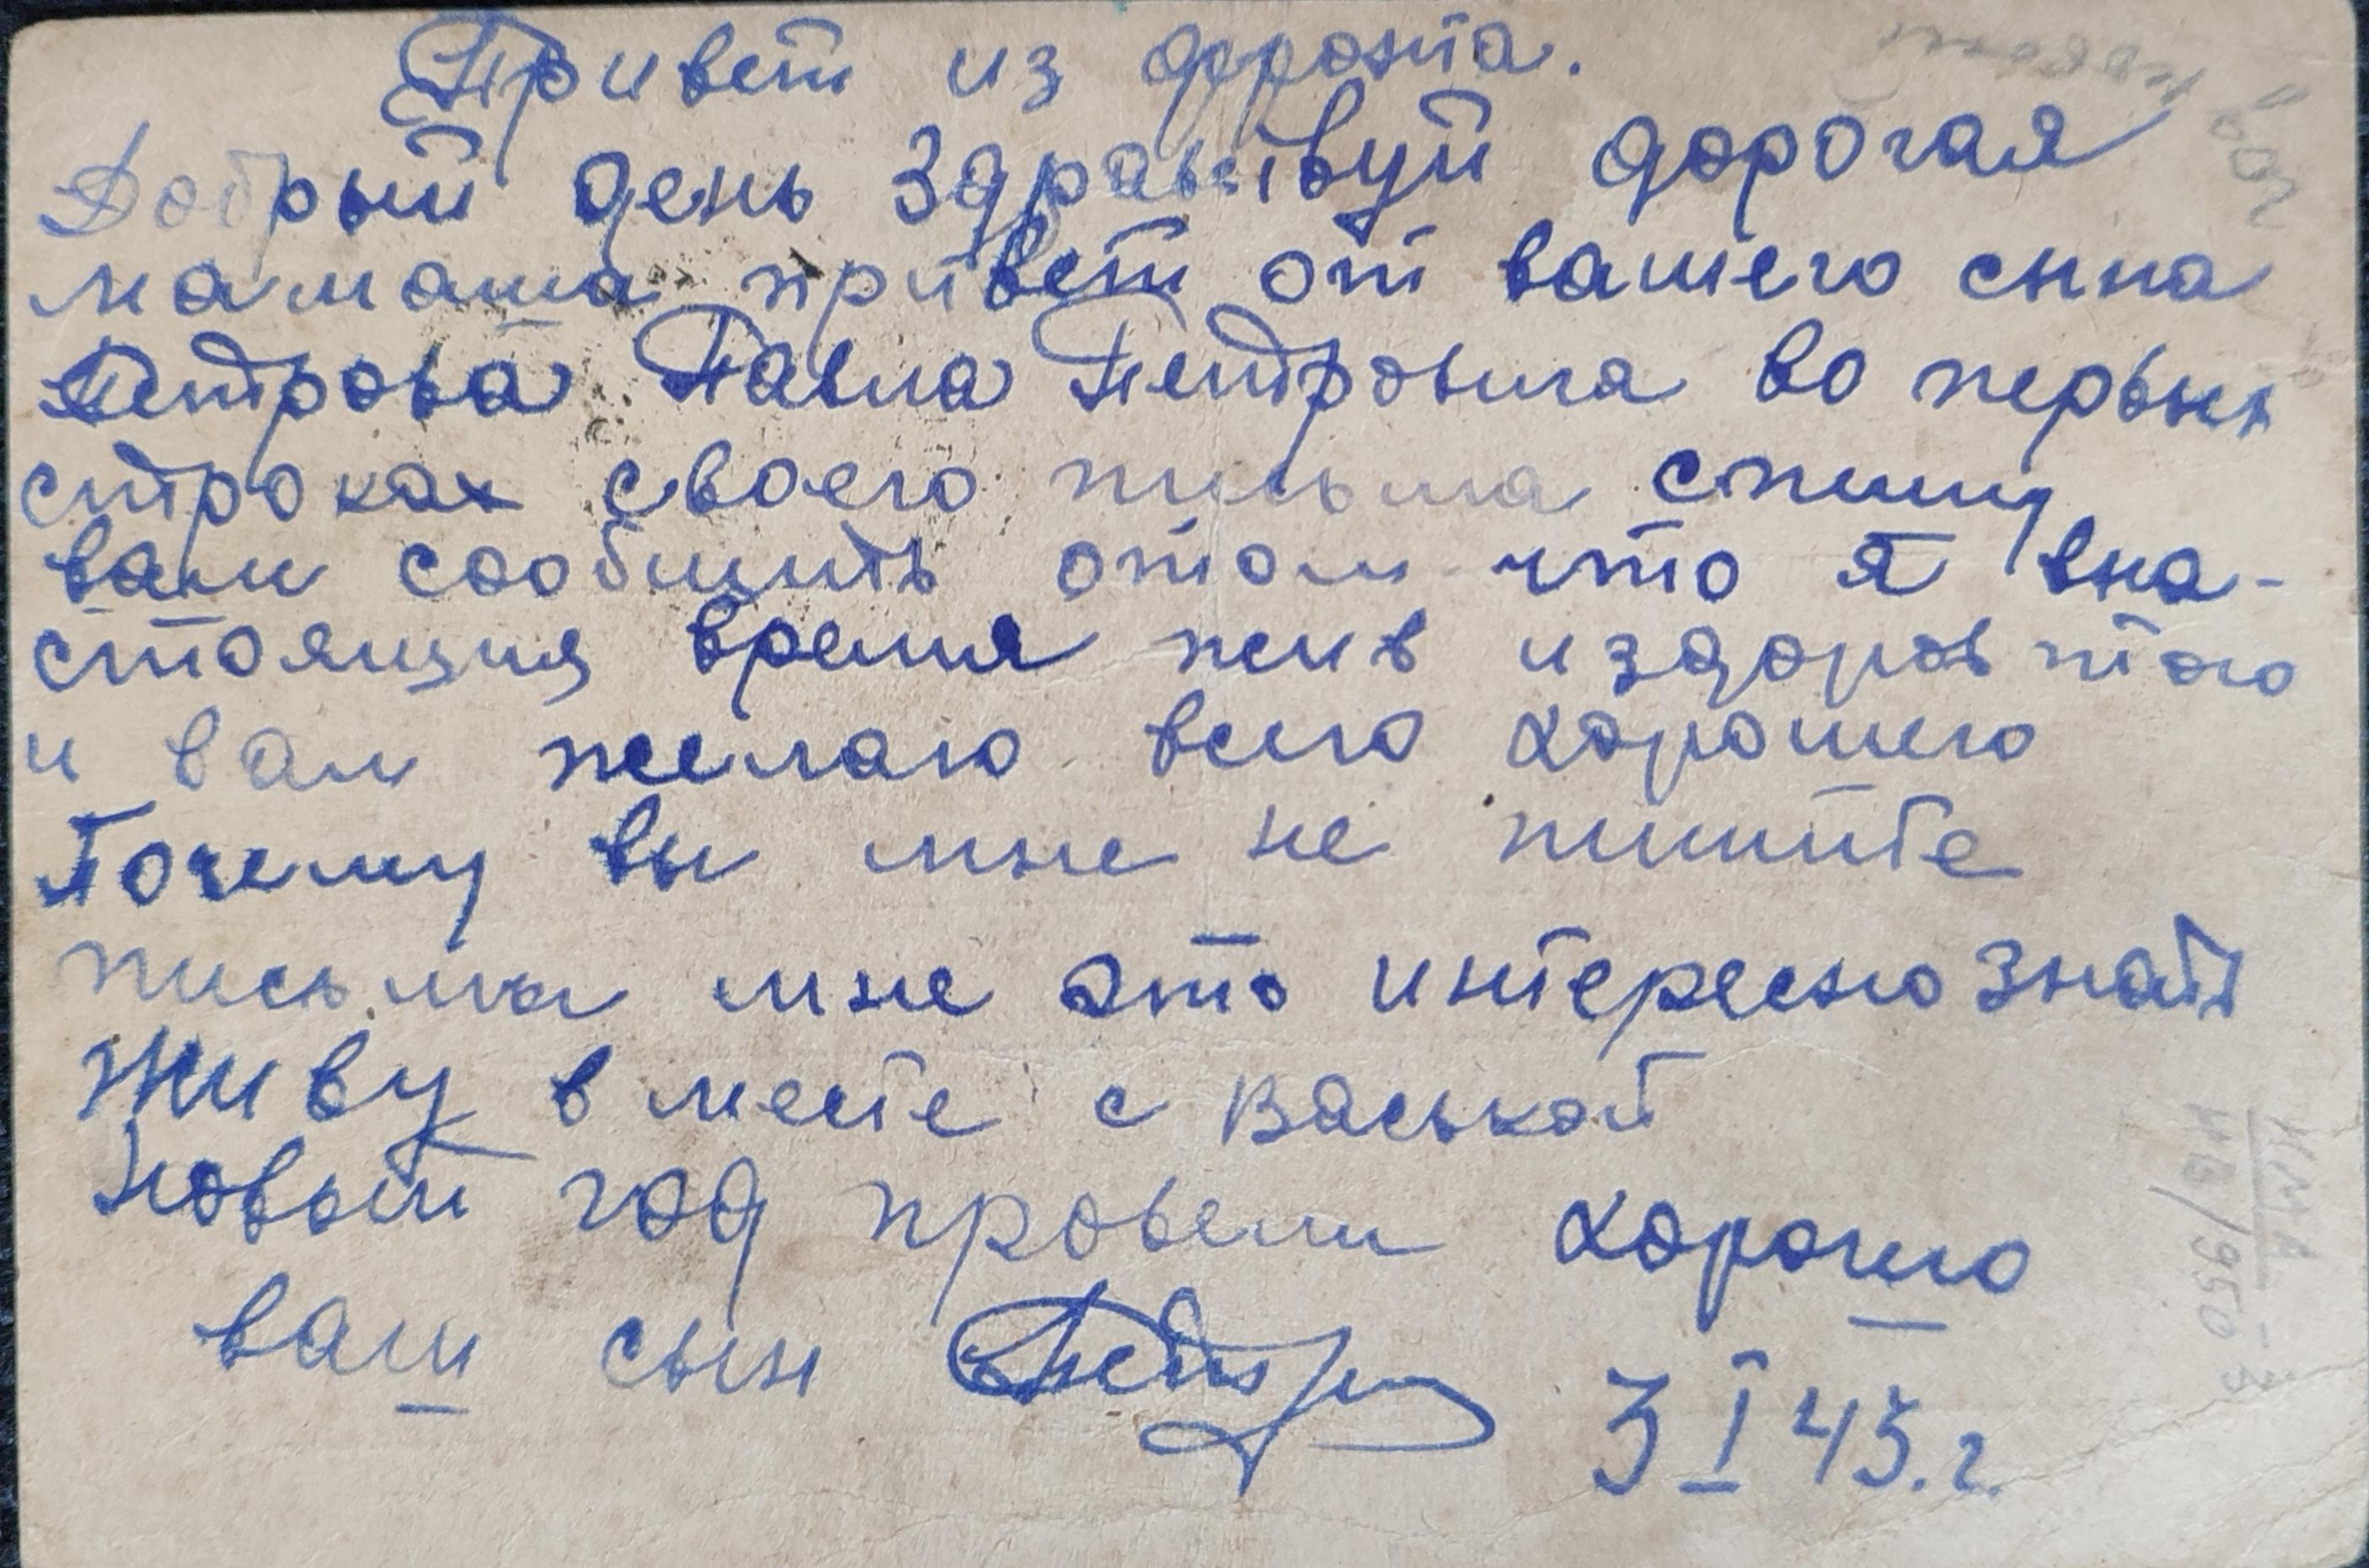 Привет из фронта.
Добрый день Здравствуй дорогая
мамаша привет от вашего сына
Петрова Павла Петровича во первых
строках своего письма спишу
вам сообщить отом что я вна-
стоящия время жив и здоров того
и вам желаю всего хорошего
Почему вы мне не пишите
письма мне это интересно знать
Живу в месте с Васькой
Новый год провели хорошо
ваш сын Петров
3 I 45.г.